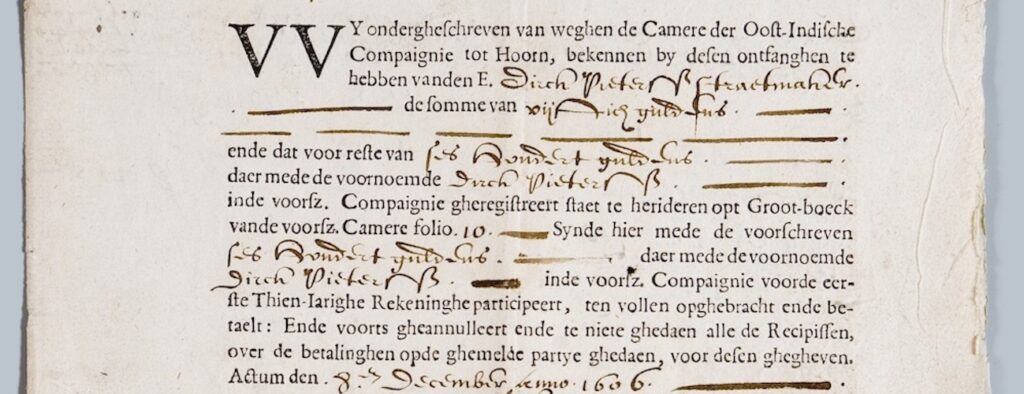 VVY ondergheschreven van weghen de Camere der Oost-Indische
Compaignie tot Hoorn, bekennen by desen ontfanghen te
hebben vanden E. Dirck Pieterss Straetmaker.
de somme van vijftich guldens.
ende dat voor reste van ses hondert guldens.
daer mede de voornoemde Dirck Pieterss.
inde voorsz. Compaignie gheregistreert staet te herideren opt Groot-boeck
vande voorsz. Camere folio. 10. Synde hier mede de voorschreven
ses hondert guldens. daer mede de voornoemde
Dirck Pieterss inde voorsz. Compaignie voorde eer-
ste Thien-Iarighe Rekeninghe participeert, ten vollen opghebracht ende be-
taelt: Ende voorts gheannulleert ende te niete ghedaen alle de Recipissen,
over de betalinghen opde ghemelde partye ghedaen, voor desen ghegheven.
Actum den. 8en December anno. 1606.